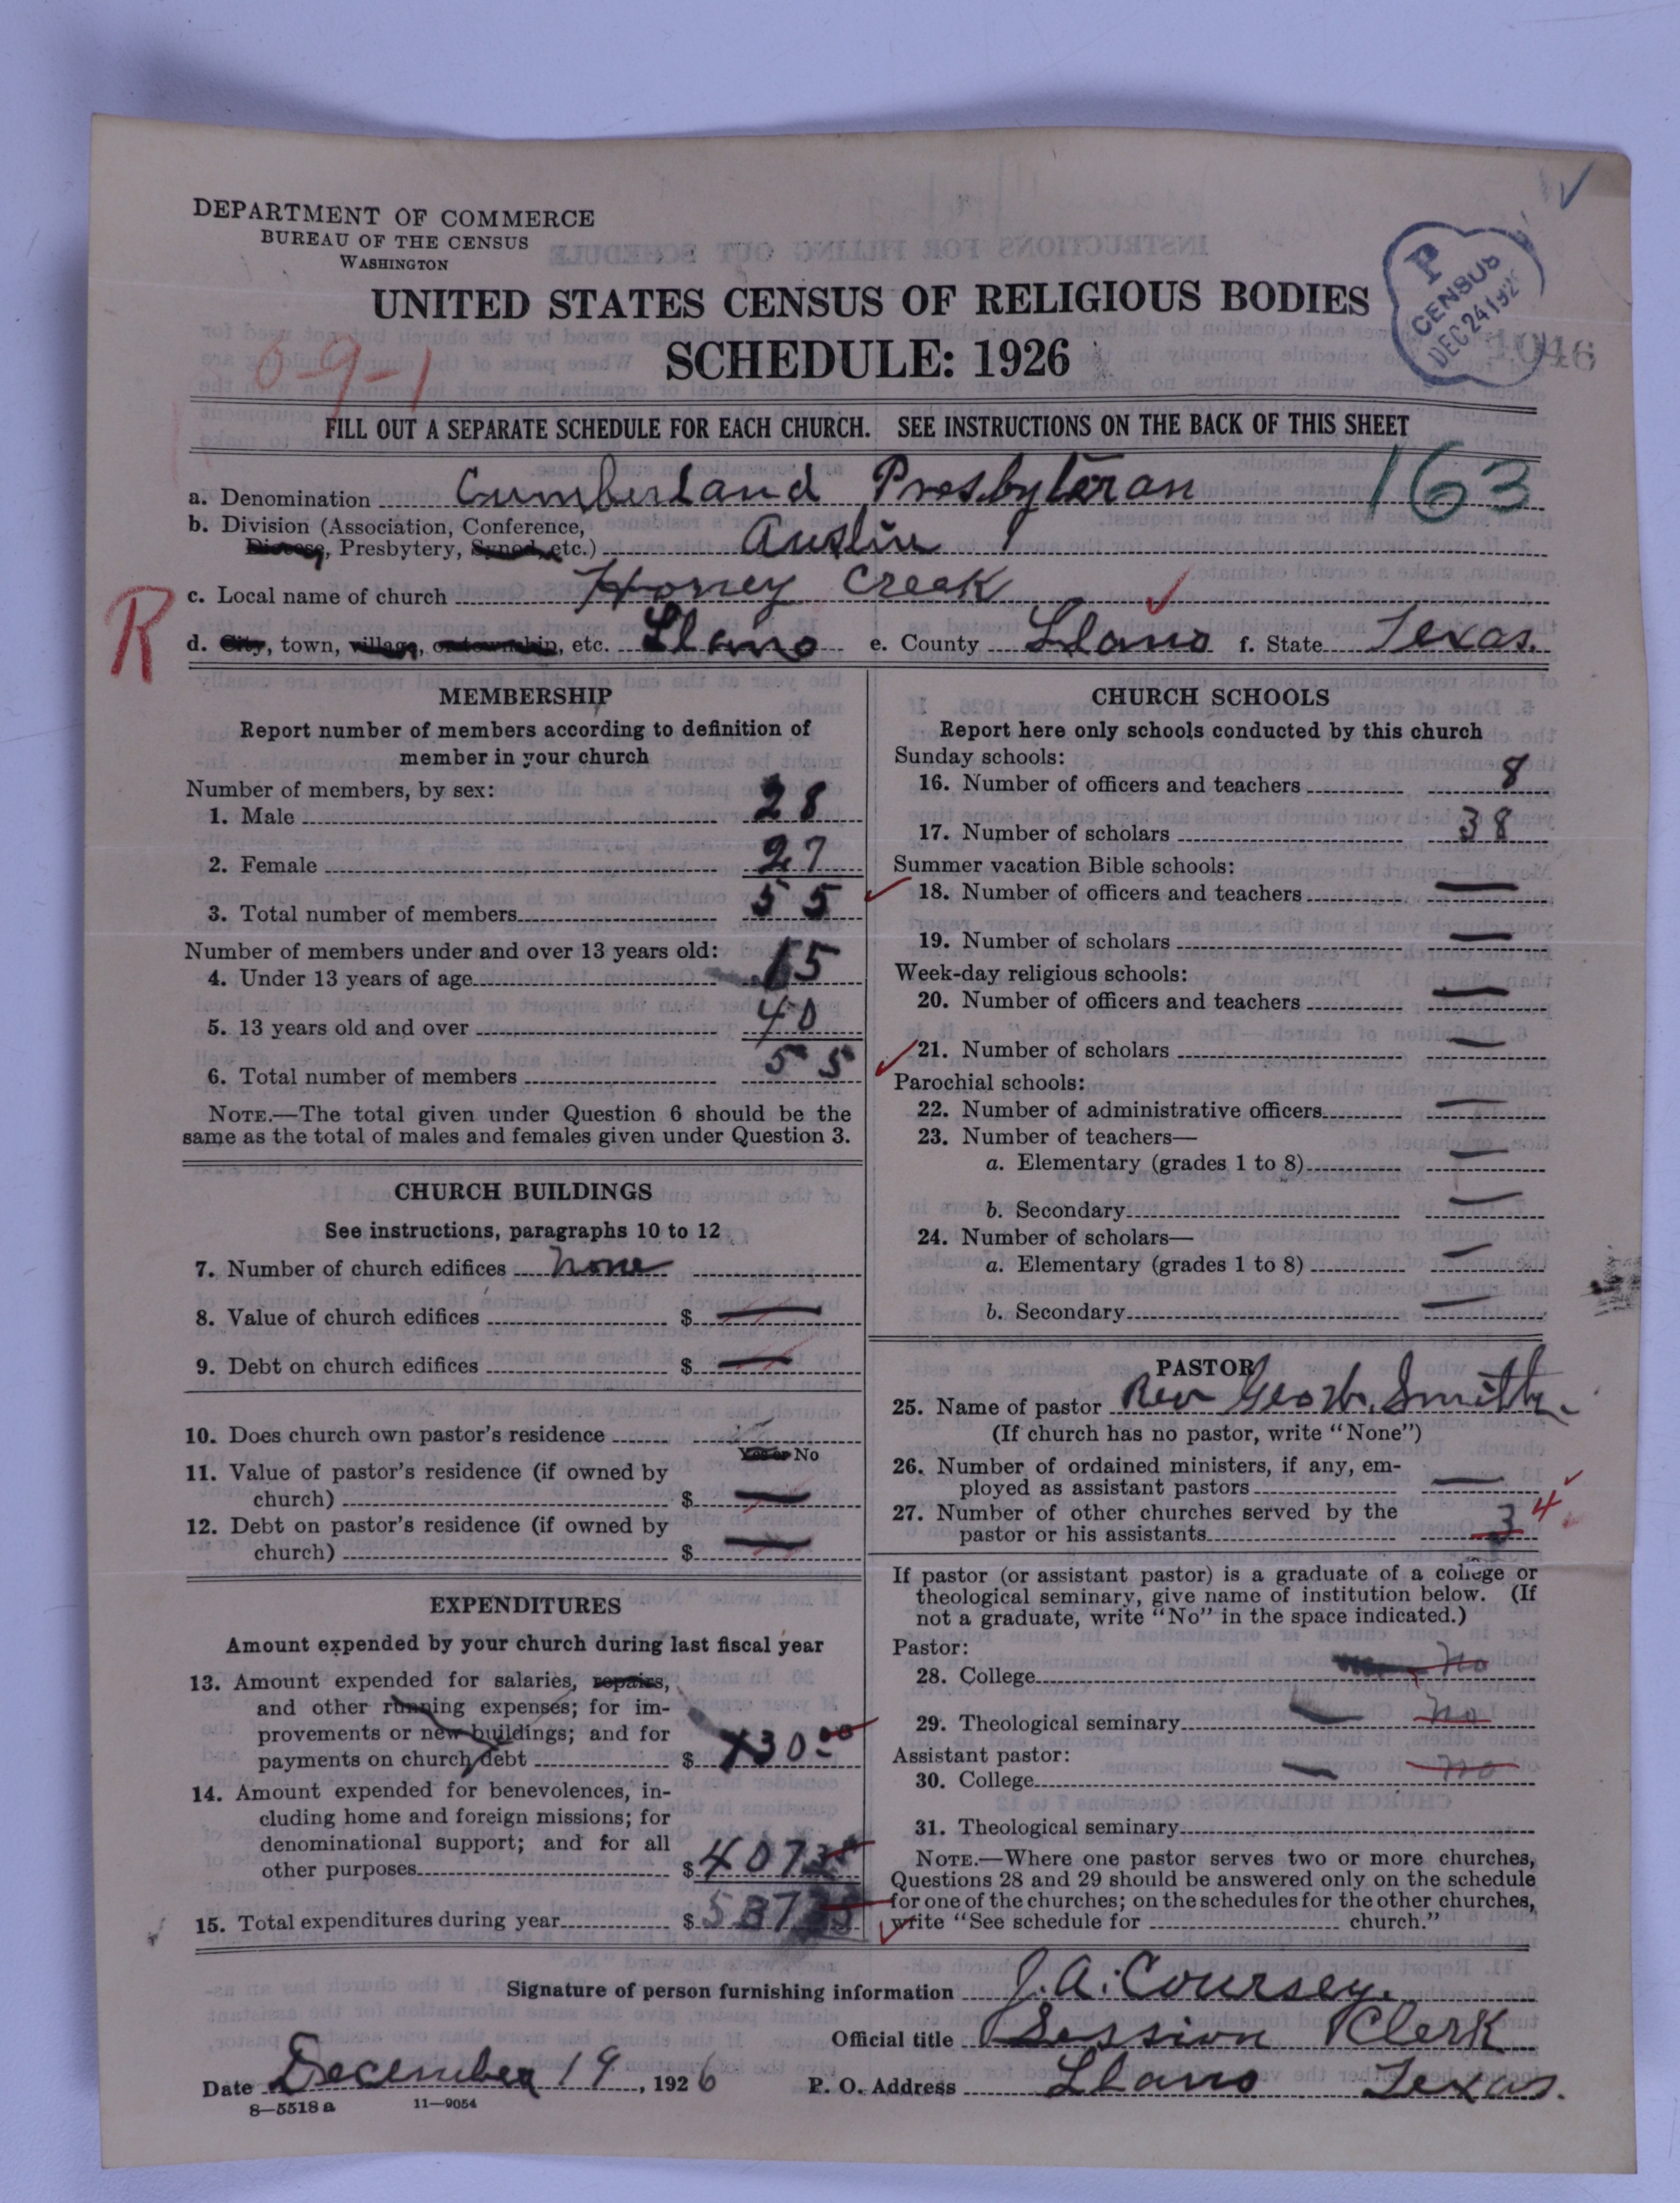 DEPARTMENT OF COMMERCE
BUREAU OF THE CENSUS
WASHINGTON
UNITED STATES CENSUS OF RELIGIOUS BODIES
SCHEDULE: 1926
P CENSUS DEC 24 192
1046
0-9-1
FILL OUT A SEPARATE SCHEDULE FOR EACH CHURCH. SEE INSTRUCTIONS ON THE BACK OF THIS SHEET
a. Denomination Cumberland Presbyteran 163
b. Division (Association, Conference,
Diocese, Presbytery, Synod, etc.) Austin
c. Local name of church Honey Creek
R
d. City, town, village, or township, etc. Llano e. County Llano f. State Texas.
MEMBERSHIP
Report number of members according to definition of
member in your church
Number of members, by sex:
1. Male 28
2. Female 27
3. Total number of members 55
Number of members under and over 13 years old:
4. Under 13 years of age 15
5. 13 years old and over 40
6. Total number of members 55
NOTE.—The total given under Question 6 should be the
same as the total of males and females given under Question 3.
CHURCH BUILDINGS
See instructions, paragraphs 10 to 12
7. Number of church edifices none
8. Value of church edifices $ —
9. Debt on church edifices $ —
10. Does church own pastor's residence
Yes or No
11. Value of pastor's residence (if owned by
church) $ —
12. Debt on pastor's residence (if owned by
church) $ —
EXPENDITURES
Amount expended by your church during last fiscal year
13. Amount expended for salaries, repairs,
and other running expenses; for im-
provements or new buildings; and for
payments on church debt $
14. Amount expended for benevolences, in-
cluding home and foreign missions; for
denominational support; and for all
other purposes $
15. Total expenditures during year $
CHURCH SCHOOLS
Report here only schools conducted by this church
Sunday schools:
16. Number of officers and teachers 8
17. Number of scholars 38
Summer vacation Bible schools:
18. Number of officers and teachers —
19. Number of scholars —
Week-day religious schools:
20. Number of officers and teachers —
21. Number of scholars —
Parochial schools:
22. Number of administrative officers —
23. Number of teachers—
a. Elementary (grades 1 to 8) —
b. Secondary —
24. Number of scholars—
a. Elementary (grades 1 to 8) —
b. Secondary —
PASTOR
25. Name of pastor Rev Geo W. Smith
(If church has no pastor, write "None")
26. Number of ordained ministers, if any, em-
ployed as assistant pastors —
27. Number of other churches served by the
pastor or his assistants 3 4
If pastor (or assistant pastor) is a graduate of a college or
theological seminary, give name of institution below. (If
not a graduate, write "No" in the space indicated.)
Pastor:
28. College No
29. Theological seminary — No
Assistant pastor:
30. College — No
31. Theological seminary
NOTE.—Where one pastor serves two or more churches,
Questions 28 and 29 should be answered only on the schedule
for one of the churches; on the schedules for the other churches,
write "See schedule for church."
Signature of person furnishing information J. A. Coursey.
Official title Session Clerk
Date December 19, 1926 P. O. Address Llano Texas.
8—5518 a 11—9054